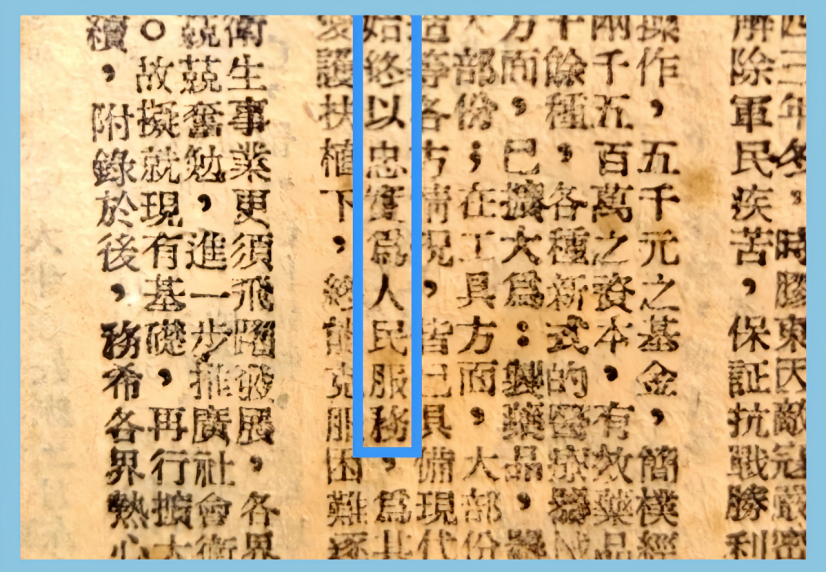 四三年冬，時膠東因敵寇嚴密
解除軍民疾苦，保証抗戰勝利
操作，五千元之基金，簡樸經
兩千五百萬之資本，有效藥品
千餘種，各種新式的醫療器械
方面，已擴大爲：製藥品，器
大部份；在工具方面，大部份
造等各方情況，皆已具備現代
始終以忠實爲人民服務，爲其
愛護扶植下，終能克服困難逐
衛生事業更須飛躍發展，各界
兢兢奮勉，進一步推廣社會衛
。故擬就現有基礎，再行擴大
續，附錄於後，務希各界熱心